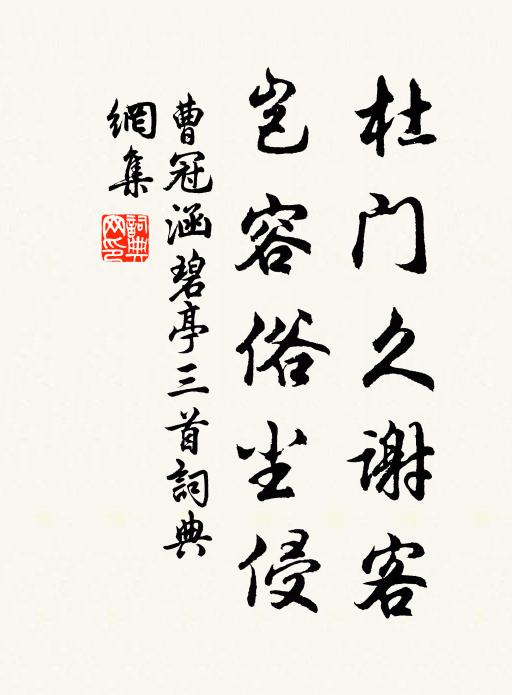 杜门久谢客
岂容俗尘侵
曹冠涵碧亭三首詞典
網集
詞典網印